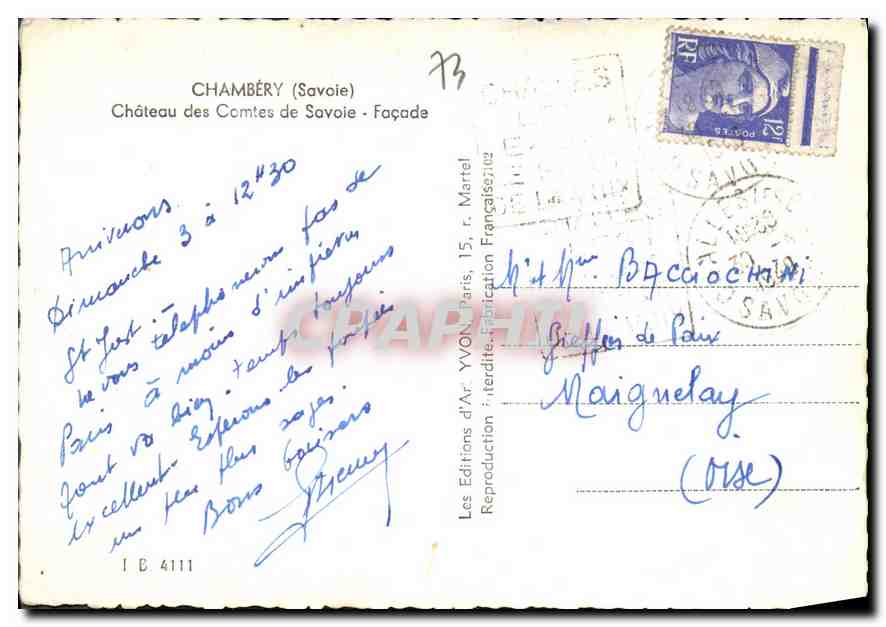 CHAMBÉRY (Savoie)
Château des Comtes de Savoie - Façade
73
Arriverons
Dimanche 3 à 12H30
St Just. À
ne vous téléphonerons pas de
Paris à moins d'imprévu
tout va bien. temps toujours
excellent. Espérons les
un peu plus sages.
Bons baisers
I B 4111
Les Editions d'Art YVON, Paris, 15, r. Martel
Reproduction interdite. Fabrication Française 7102
RF
POSTES
12F
SAVOIE
SAVOIE
Mr & Mme BACCIOCHINI
Greffier de Paix
Maignelay
(Oise)
CPAPHIL